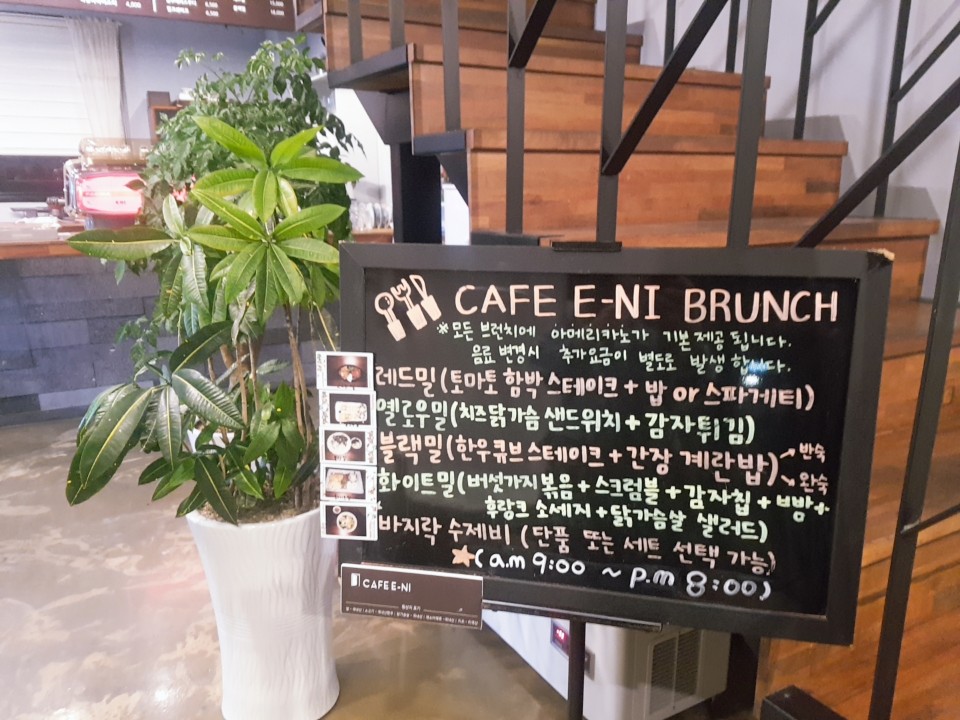 CAFE E-NI BRUNCH
※모든 브런치에 아메리카노가 기본제공 됩니다.
음료 변경시 추가요금이 별도로 발생 합니다.
레드밀(토마토 함박 스테이크 + 밥 or 스파게티)
옐로우밀(치즈닭가슴 샌드위치 + 감자튀김)
블랙밀(한우큐브스테이크 + 간장 계란밥) 반숙
완숙
화이트밀(버섯가지볶음 + 스크럼블 + 감자칩 + 빵+
후랑크 소세지 + 닭가슴살 샐러드)
바지락 수제비 (단품 또는 세트 선택 가능)
★(a.m 9:00 ~ p.m 8:00)
CAFE E-NI
원산지 표기